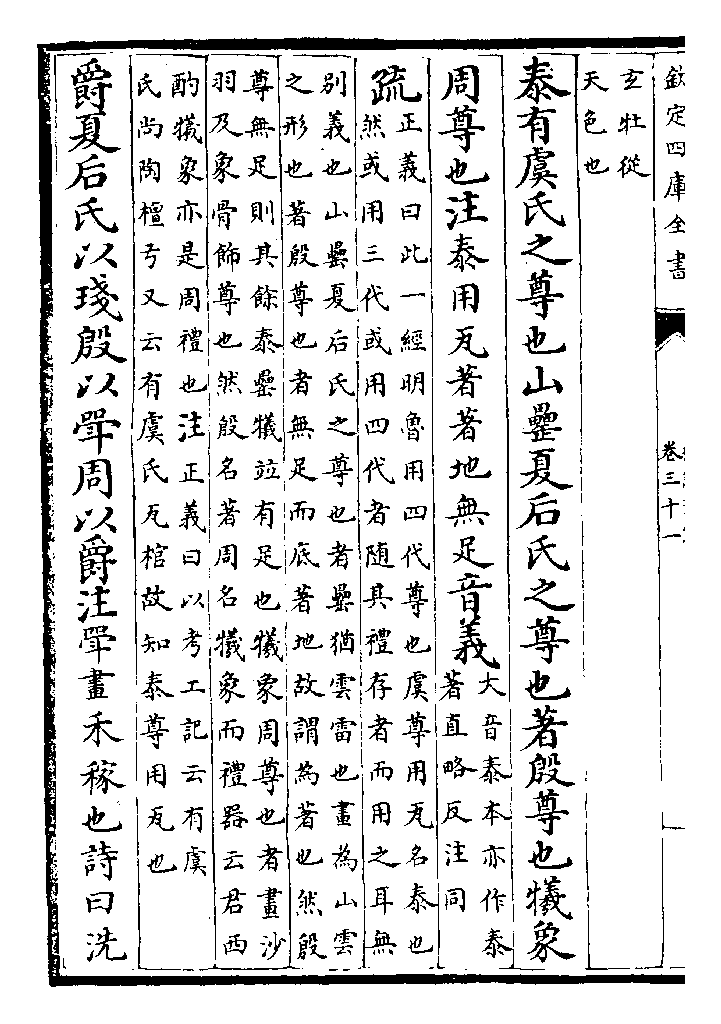 欽定四庫全書
卷三十一
玄牡從
天色也
泰有虞氏之尊也山罍夏后氏之尊也著殷尊也犧象
周尊也注泰用瓦著著地無足音義
大音泰本亦作泰
著直略反注同
疏
正義曰此一經明魯用四代尊也虞尊用瓦名泰也
然或用三代或用四代者隨其禮存者而用之耳無
別義也山罍夏后氏之尊也者罍猶雲雷也畫為山雲
之形也著殷尊也者無足而底著地故謂為著也然殷
尊無足則其餘泰罍犧並有足也犧象周尊也者畫沙
羽及象骨飾尊也然殷名著周名犧象而禮器云君西
酌犧象亦是周禮也注正義曰以考工記云有虞
氏尚陶檀弓又云有虞氏瓦棺故知泰尊用瓦也
爵夏后氏以琖殷以斝周以爵注斝畫禾稼也詩曰洗